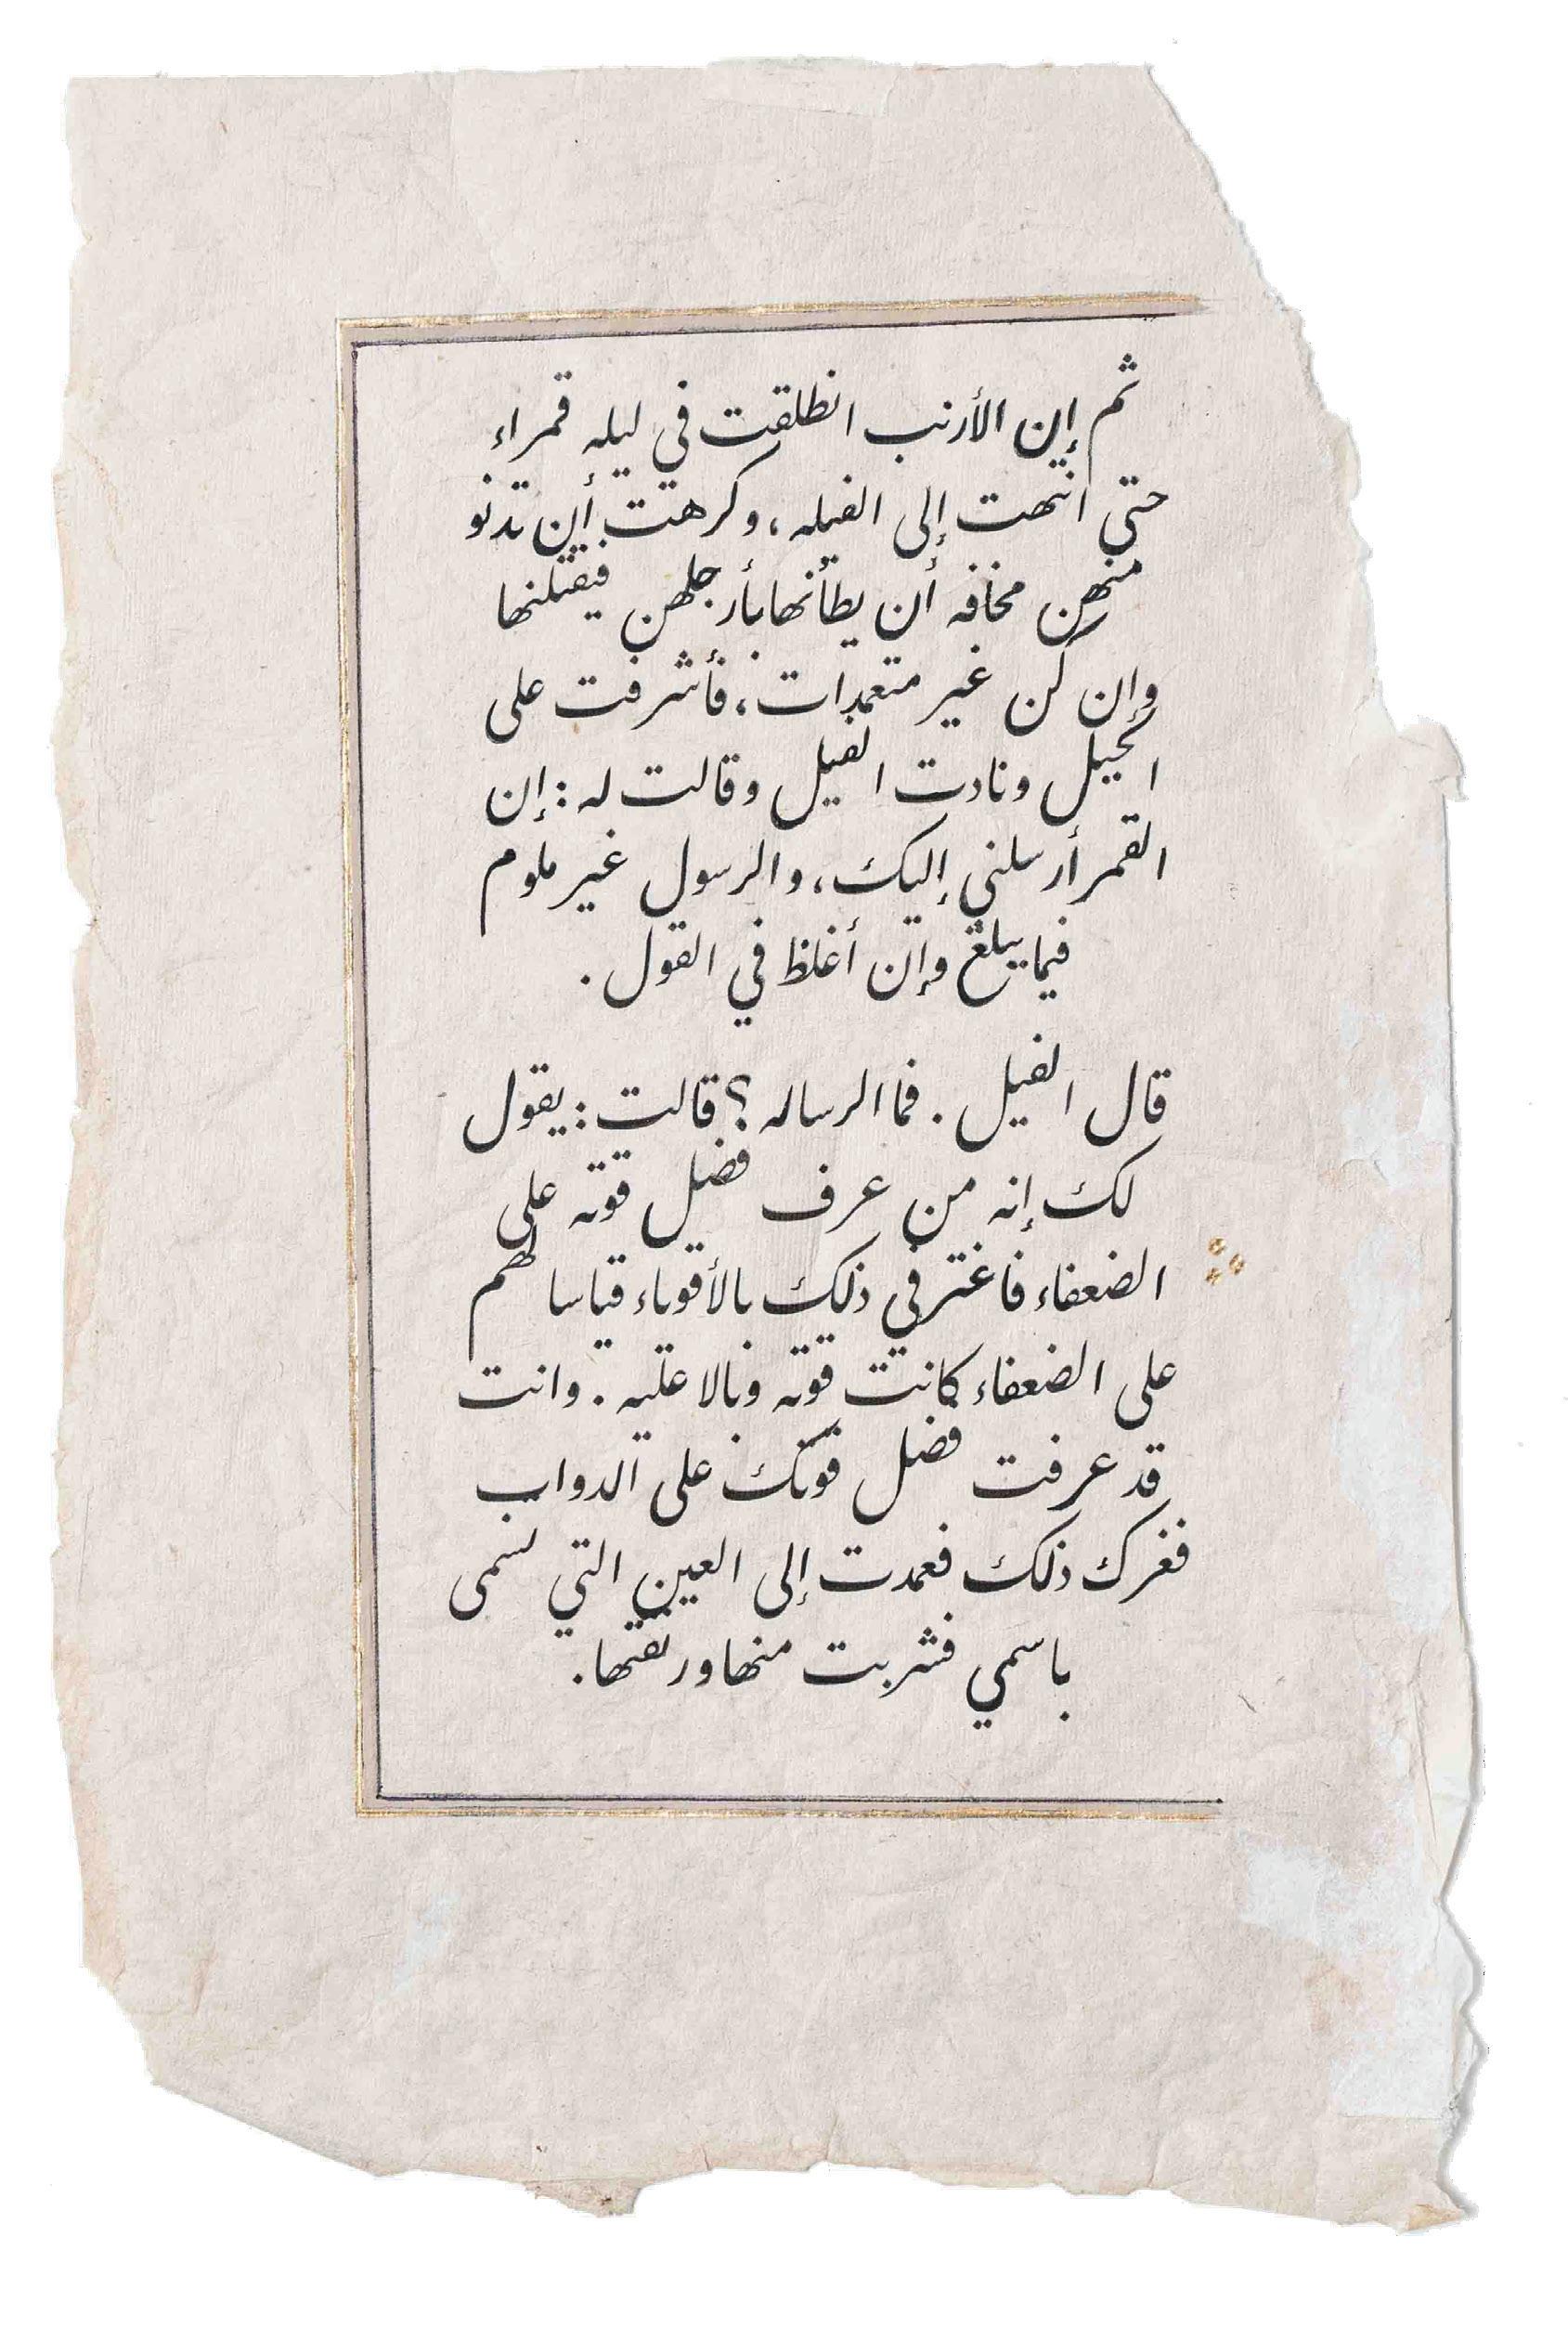 ثم إن الأرنب انطلقت في ليله قمراء
حتى انتهت إلى الفيله، وكرهت أن تدنو
منهن مخافه أن يطأنها بأرجلهن فيقتلنها
وإن كن غير متعمدات، فأشرفت على
الجبل ونادت الفيل وقالت له: إن
القمر أرسلني إليك، والرسول غير ملوم
فيما يبلغ وإن أغلظ في القول.
قال الفيل. فما الرساله؟ قالت: يقول
لك إنه من عرف فضل قوته على
الضعفاء فاغتر في ذلك بالأقوياء قياسا لهم
على الضعفاء كانت قوته وبالا عليه. وانت
قد عرفت فضل قوتك على الدواب
فغرك ذلك فعمدت إلى العين التي تسمى
باسمي فشربت منها ورنقتها.